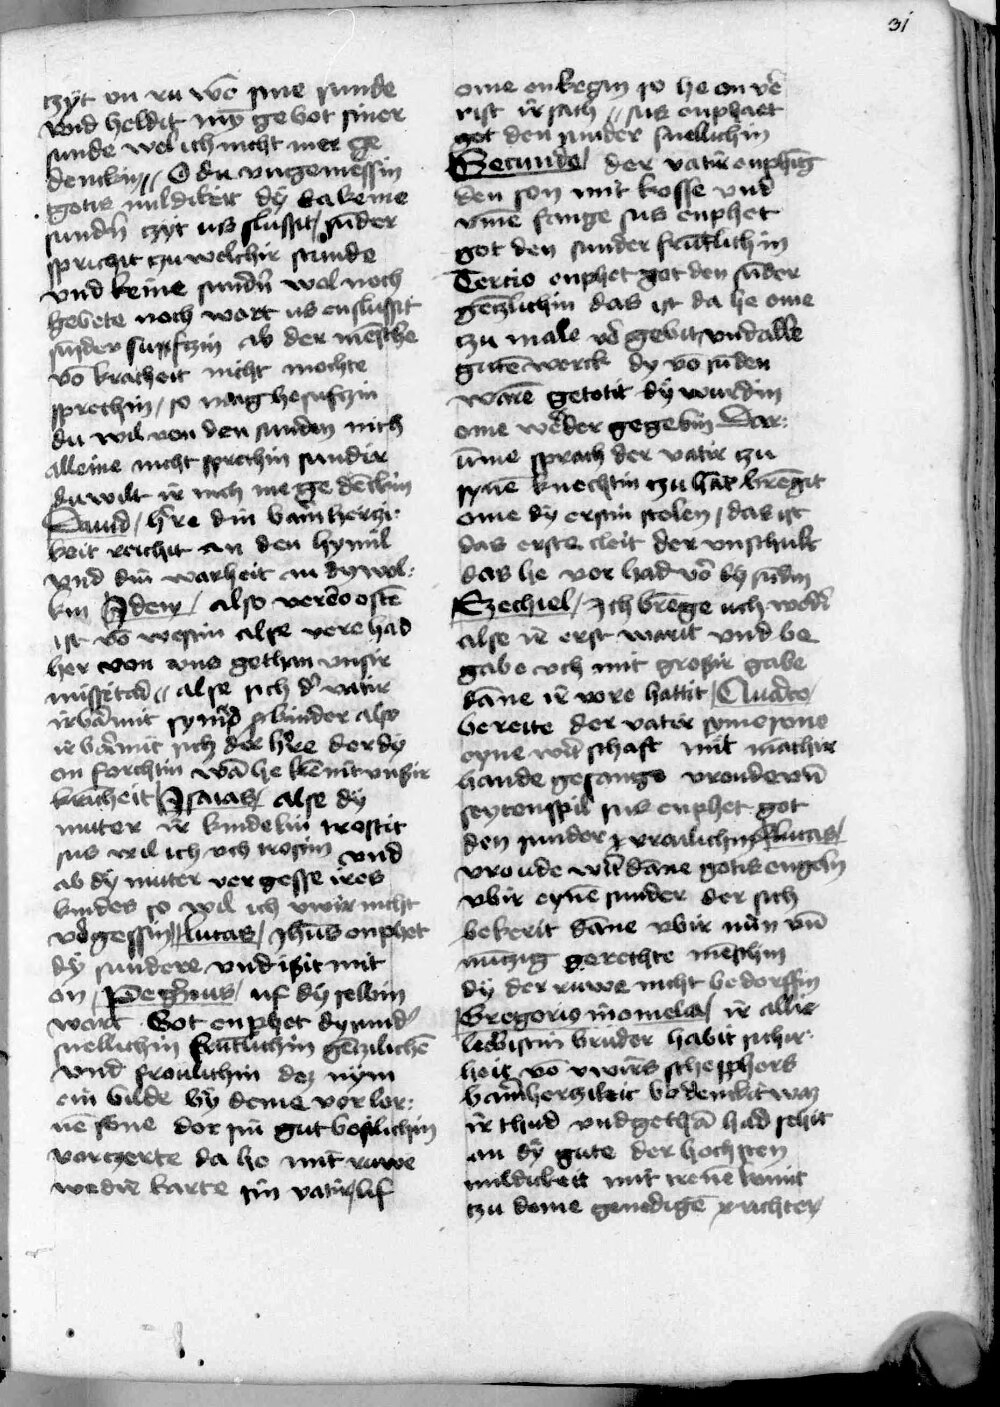 31
czyt vn ru vō sine sunde
vnd heldit myn gebot siner
sunde wel ich nicht mer ge
denckin // O du vngemessin
gotis mildikeit dÿ da keine
sundʼn czyt us slussit / sūder
sprichit czu welchir stunde
vnd keine sundʼn wol noch
gebete noch wort us enslussit
sunder sufczin ab der mēsche
vō kracheit nicht mochte
sprechin / so mag he sufczin
du wil von den sunden nich
alleine nicht sprechin sundir
du wilt ir nich me gedēckin
Dauid / hʼre din barmherczi:
keit reichit an den hymil
vnd din warheit an dy wol:
kin Idem / also verre osten
ist vō westin alse verre had
her von vns gethan vnsir
missetad // alse sich dʼ vatir
irbarmit synir kinder also
irbarmit sich der hʼre der dy
en forchtin wā he kennit vnsir
krācheit Isaias / alse dÿ
muter ir kindelin trostit
sus wil ich vch trostin vnd
ab dÿ muter vergesse ires
kindes so wil ich vwir nicht
vʼgessin // lucas / Jhūs enphet
dÿ sundere vnd isit mit
en / uf dÿ selbin
wort Got enphet dy sundʼ
snellichin frūtlichin gēczlichē
vnd froilichin dez nym
ein bilde bÿ deme vorlor:
nē sone dor sin gut boslichin
vorczerte da he mit ruwe
wedir karte sin vatir lif
ome enkegin so he en vʼe
rist ir sach // sus enphaet
got den sunder snellichin
Secundo / der vatir enphīg
den son mit kosse vnd
vmē fange sus enphet
got den sunder frūtlichin
Tercio enphet got den sūder
gēczlichin das ist da he ome
czu male vʼgebit vnd alle
gutē werck dy vō sūden
warē getotit dÿ wurdin
ome weder gegebin Dar:
ūme sprach der vatir czu
synē knechtin czu hāt brēgit
ome dÿ erstin stolen / das ist
das erste cleit der vnschult
das he vor had vō dy sūdin
Ezechiel / Ich brēge uch wedʼ
alse ir erst warit vnd be
gabe vch mit grosir gabe
dāne ir vore hattit / Quarto /
bereite der vatir syme sone
eyne wirtschaft mit māchir
hande gesange vroude vn̄
seytenspil sus enphet got
den sunder vroilichin Lucas /
vroude wirt dāne gotis engeln
vbir eynē sunder der sich
bekerit dāne vbir nūn vn̄
nūczig gerechte mēschin
dÿ der ruwe nicht bedorffin
Gregorius in omelia / ir allir
liebistin bruder habit sichir:
heit vō vwirs scheppfers
barmherczikeit bedenckit waz
ir thud vnd gethā had sehit
an dÿ gute der hochsten
mildickeit mit trenē kumit
czu deme genedigē richter /